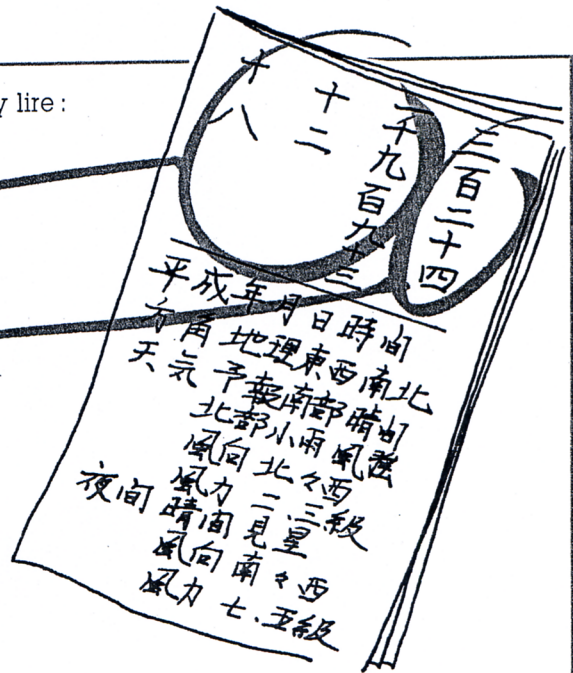 y lire :
三百二十四
一千九百九十三
十二
十八
平成年月日時间
方角 地理東西南北
天気 予報南部晴
北部小雨風強
風向 北々西
風力 二.三級
夜间 晴间見星
風向 南々西
風力 七.五級